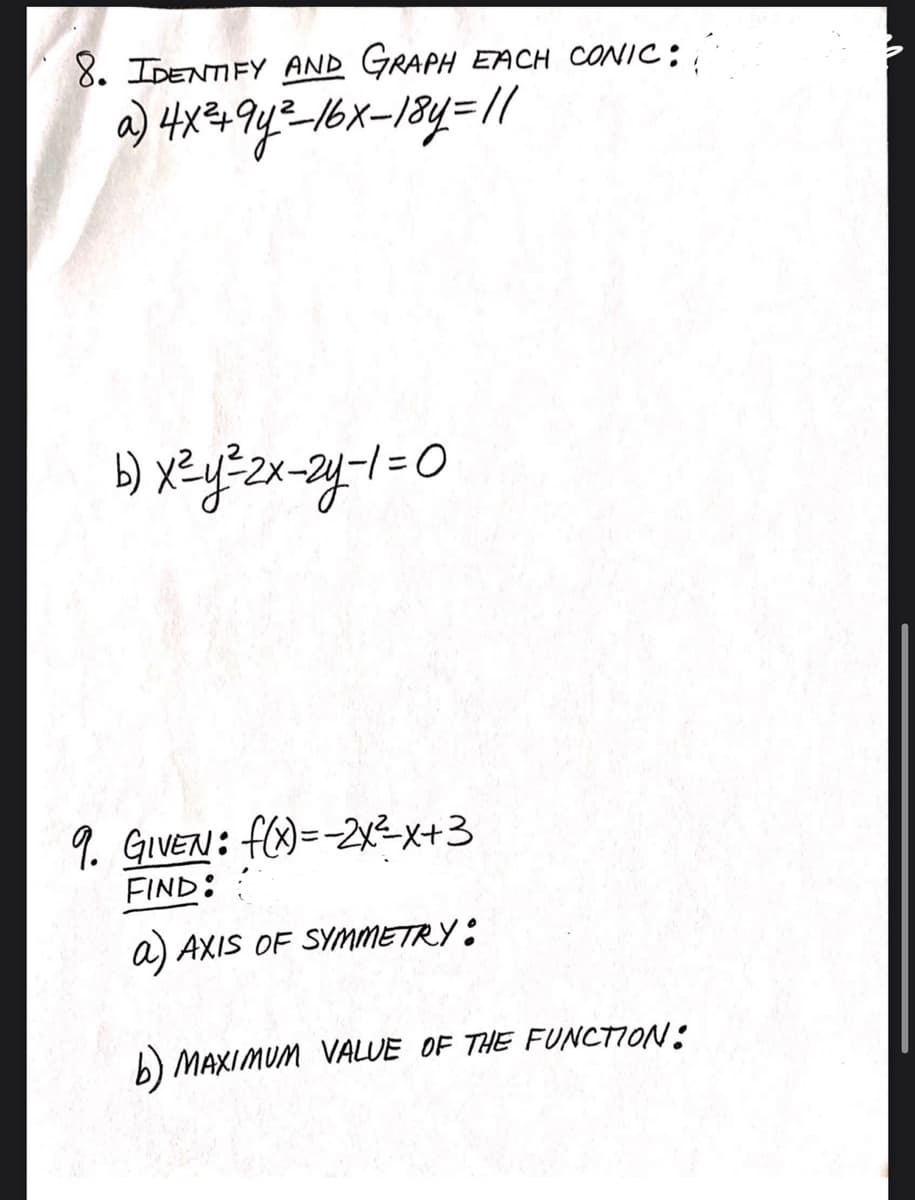 8. IDENTIFY AND GRAPH EACH CONIC:
a) 4x²+9y²-16x-18y=11
b) x²-y²-2x-2y-1=0
9. GIVEN: f(x)=-2x²-x+3
FIND:
a) AXIS OF SYMMETRY:
b) MAXIMUM VALUE OF THE FUNCTION: